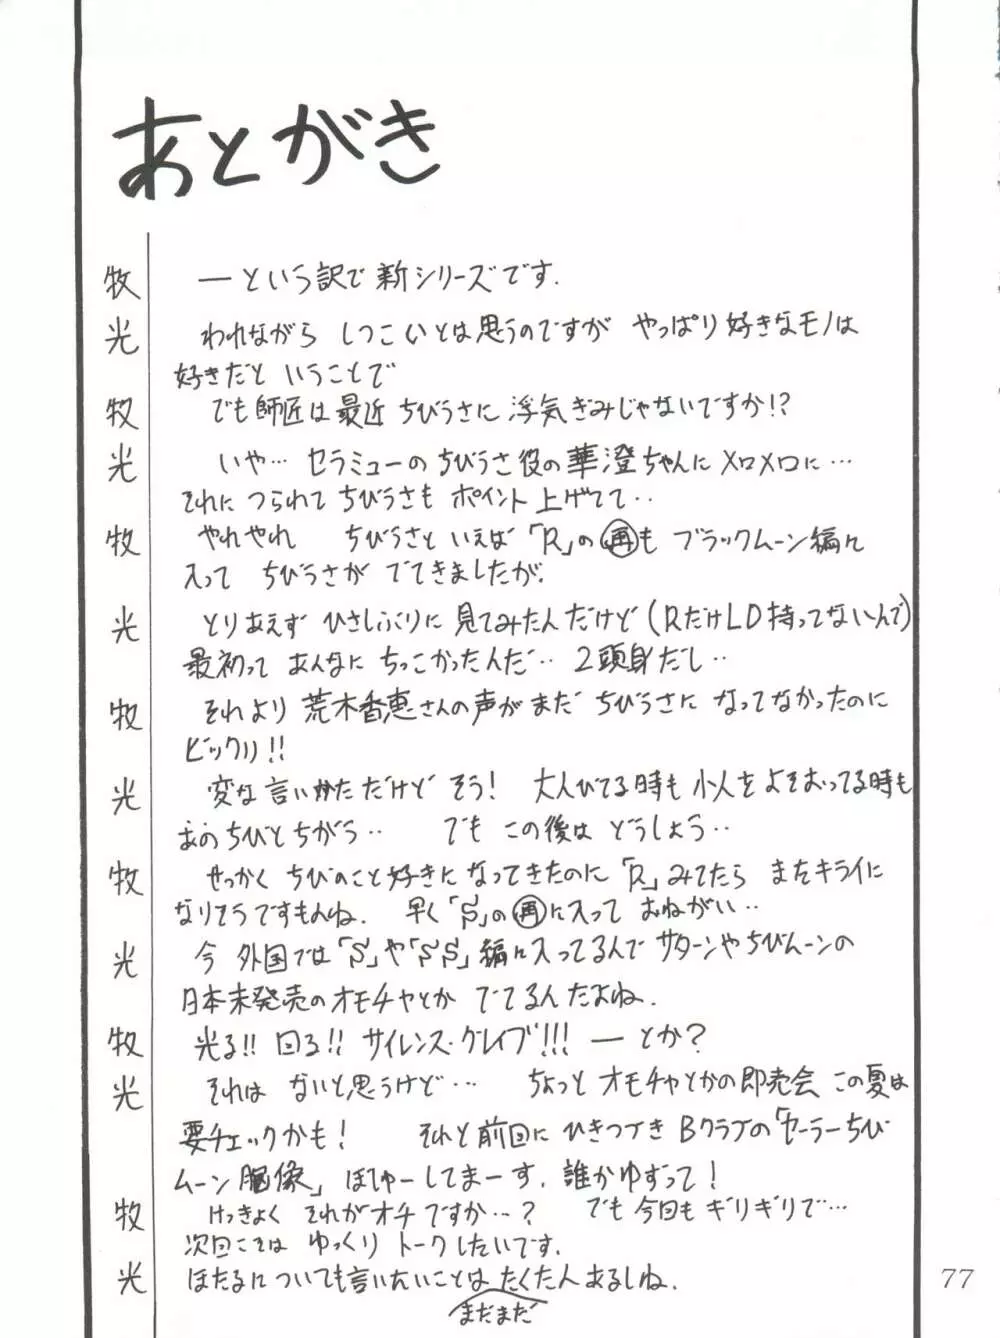 あとがき
牧 ―という訳で新シリーズです.
光 われながら しつこいとは思うのですが やっぱり好きなモノは
好きだと いうことで
牧 でも師匠は最近 ちびうさに 浮気ぎみじゃないですか!?
光 いや… セラミューの ちびうさ役の華澄ちゃんに メロメロに…
それに つられて ちびうさも ポイント上げてて‥
牧 やれやれ ちびうさと いえば「R」の㊢も ブラックムーン編に
入って ちびうさが でてきましたが.
光 とりあえず ひさしぶりに 見てみたんだけど(RだけLD持ってないんで)
最初って あんなに ちっこかったんだ‥ 2頭身だし‥
牧 それより 荒木香恵さんの声が まだ ちびうさに なってなかったのに
ビックリ!!
光 変な言いかただけど そう! 大人びてる時も 小人をよそおってる時も
あのちびとちがう‥ でも この後は どうしよう‥
牧 せっかく ちびのこと好きになってきたのに「R」みてたら またキライに
なりそうですもんね. 早く「S」の再に入って おねがい‥
光 今 外国では「S」や「SS」編に入ってるんで サターンやちびムーンの
日本未発売のオモチャとか でてるんだよね.
牧 光る!! 回る!! サイレンス・グレイブ!!! ―とか?
光 それは ないと思うけど… ちょっと オモチャとかの即売会 この夏は
要チェックかも! それと前回に ひきつづき Bクラブの「セーラーちび
ムーン胸像」ぼしゅーしてまーす. 誰かゆずって!
牧 けっきょく それがオチですか…? でも今回も ギリギリで…
次回こそは ゆっくり トークしたいです.
光 ほたるについても言いたいことは たくさん あるしね.
まだまだ
77